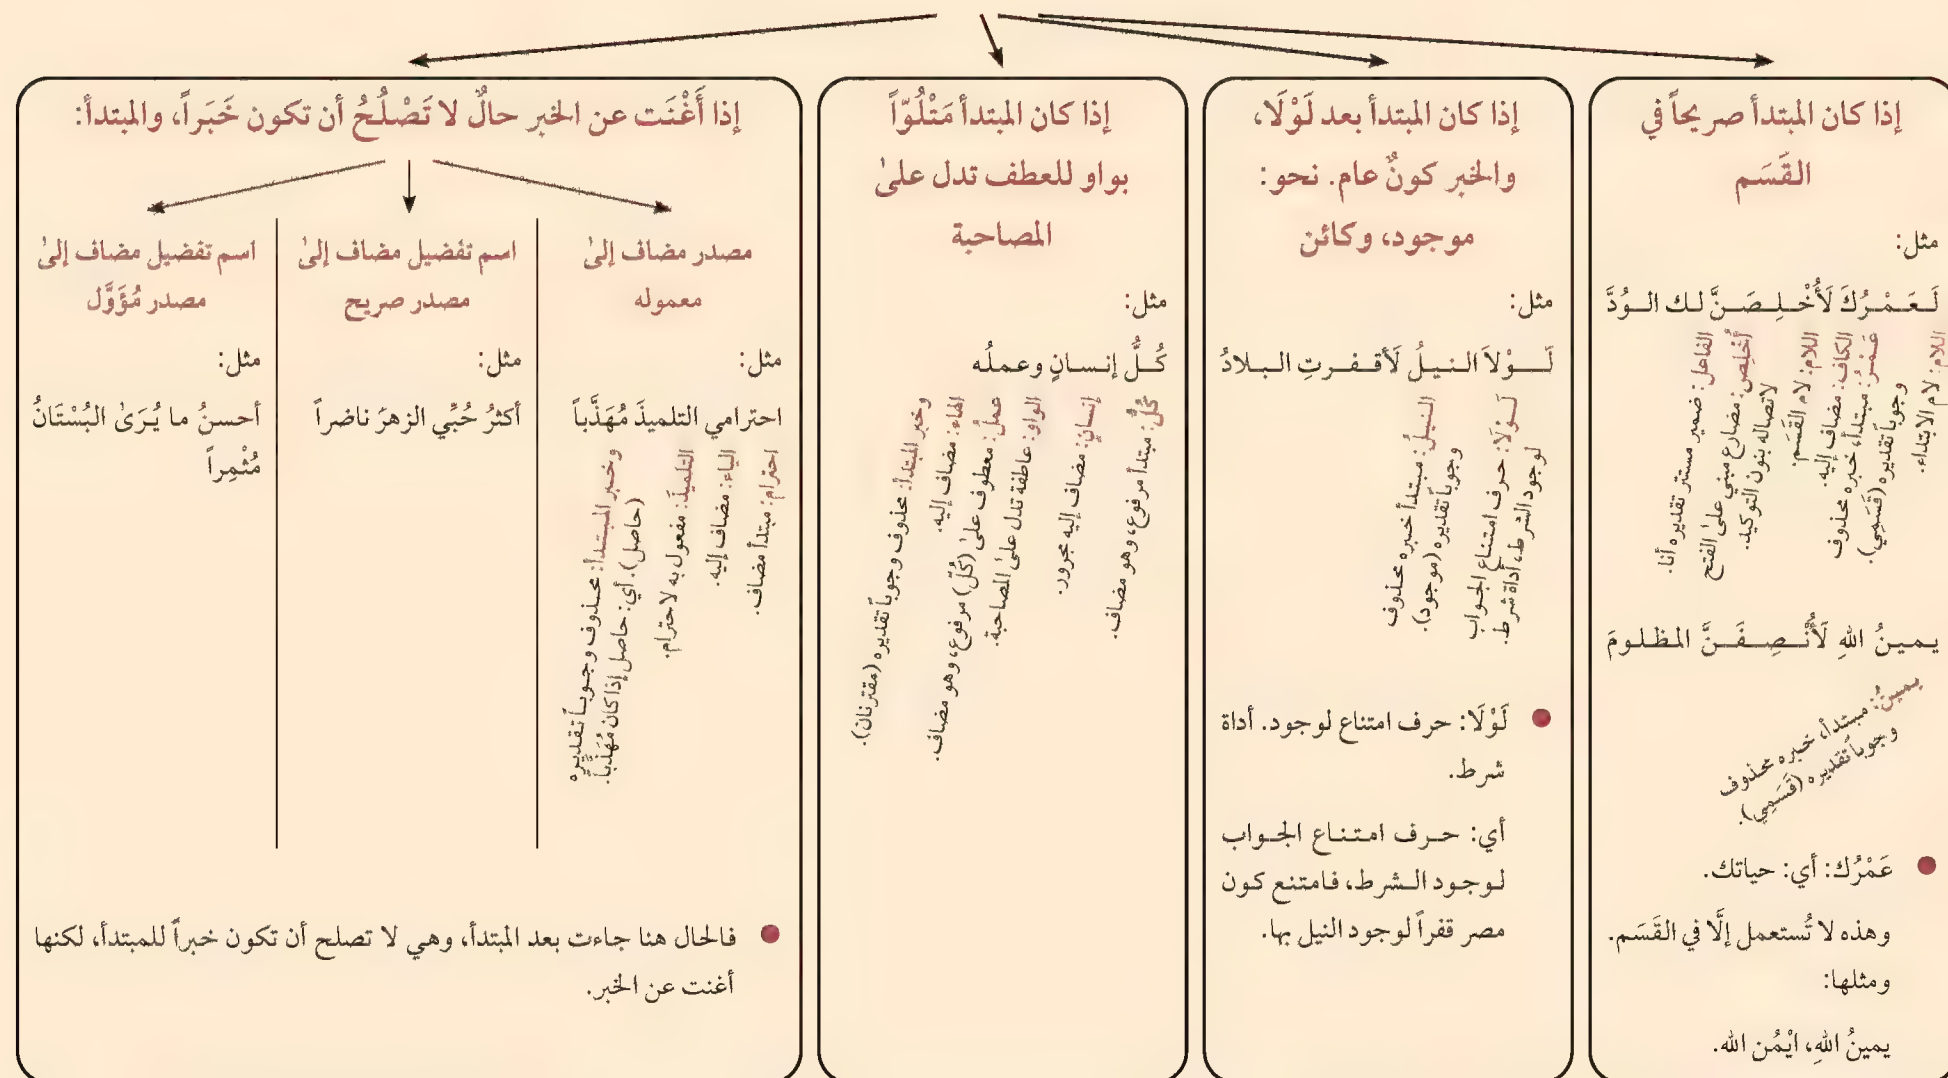 إذا كان المبتدأ صريحاً في
القَسَم
مثل:
لَـعَـمْـرُكَ لَأُخْـلِـصَـنَّ لـك الـوُدَّ
اللام: لام الابتداء.
عَمْرُ: مبتدأ، خبره محذوف
وجوباً تقديره (قَسَمِي).
الكاف: مضاف إليه.
اللام: لام القَسَم.
أُخْلِصَ: مضارع مبني علىٰ الفتح
لاتصاله بنون التوكيد.
الفاعل: ضمير مستتر تقديره أنا.
يـمـيـنُ اللهِ لَأُنْـصِـفَـنَّ المظـلـومَ
يمينُ: مبتدأ، خبره محذوف
وجوباً تقديره (قَسَمِي).
عَمْرُك: أي: حياتك.
وهذه لا تُستعمل إلَّا في القَسَم.
ومثلها:
يمينُ اللهِ، ايْمُن الله.
إذا كان المبتدأ بعد لَوْلَا،
والخبر كونٌ عام. نحو:
موجود، وكائن
مثل:
لَـوْلاَ النـيـلُ لَأقـفـرتِ البـلادُ
لَـوْلَا: حرف امتناع الجواب
لوجود الشرط، أداة شرط.
النـيلُ: مبتدأ خبره محذوف
وجوباً تقديره (موجود).
لَوْلَا: حرف امتناع لوجود. أداة
شرط.
أي: حرف امتناع الجواب
لوجود الشرط، فامتنع كون
مصر قفراً لوجود النيل بها.
إذا كان المبتدأ مَتْلُوّاً
بواو للعطف تدل علىٰ
المصاحبة
مثل:
كُـلُّ إنـسـانٍ وعملُه
كُلُّ: مبتدأ مرفوع، وهو مضاف.
إنسانٍ: مضاف إليه مجرور.
الواو: عاطفة تدل علىٰ المصاحبة.
عملُ: معطوف علىٰ (كُلّ) مرفوع، وهو مضاف.
الهاء: مضاف إليه.
وخبر المبتدأ: محذوف وجوباً تقديره (مقترنان).
إذا أَغْنَت عن الخبر حالٌ لا تَصْلُحُ أن تكون خَبَراً، والمبتدأ:
مصدر مضاف إلىٰ
معموله
مثل:
احترامي التلميذَ مُهَذَّباً
احترام: مبتدأ مضاف.
الياء: مضاف إليه.
التلميذَ: مفعول به لاحترام.
وخبر المبتدأ: محذوف وجوباً تقديره
(حاصل). أي: حاصل إذا كان مُهَذَّباً.
اسم تفضيل مضاف إلىٰ
مصدر صريح
مثل:
أكثرُ حُبِّي الزهرَ ناضراً
اسم تفضيل مضاف إلىٰ
مصدر مُؤَوَّل
مثل:
أحسنُ ما يُرَىٰ البُسْتَانُ
مُثْمِراً
فالحال هنا جاءت بعد المبتدأ، وهي لا تصلح أن تكون خبراً للمبتدأ، لكنها
أغنت عن الخبر.